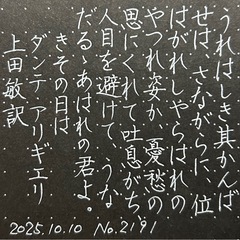 うれはしき其かんば
せは、さながらに、位
はがれしやらはれの
やつれ姿か、憂愁の
思にくれて吐息がち、
人目を避けて、うな
だる、あはれの君よ。
きその日は
ダンテ アリギエリ
上田 敏 訳
2025.10.10 No.2191